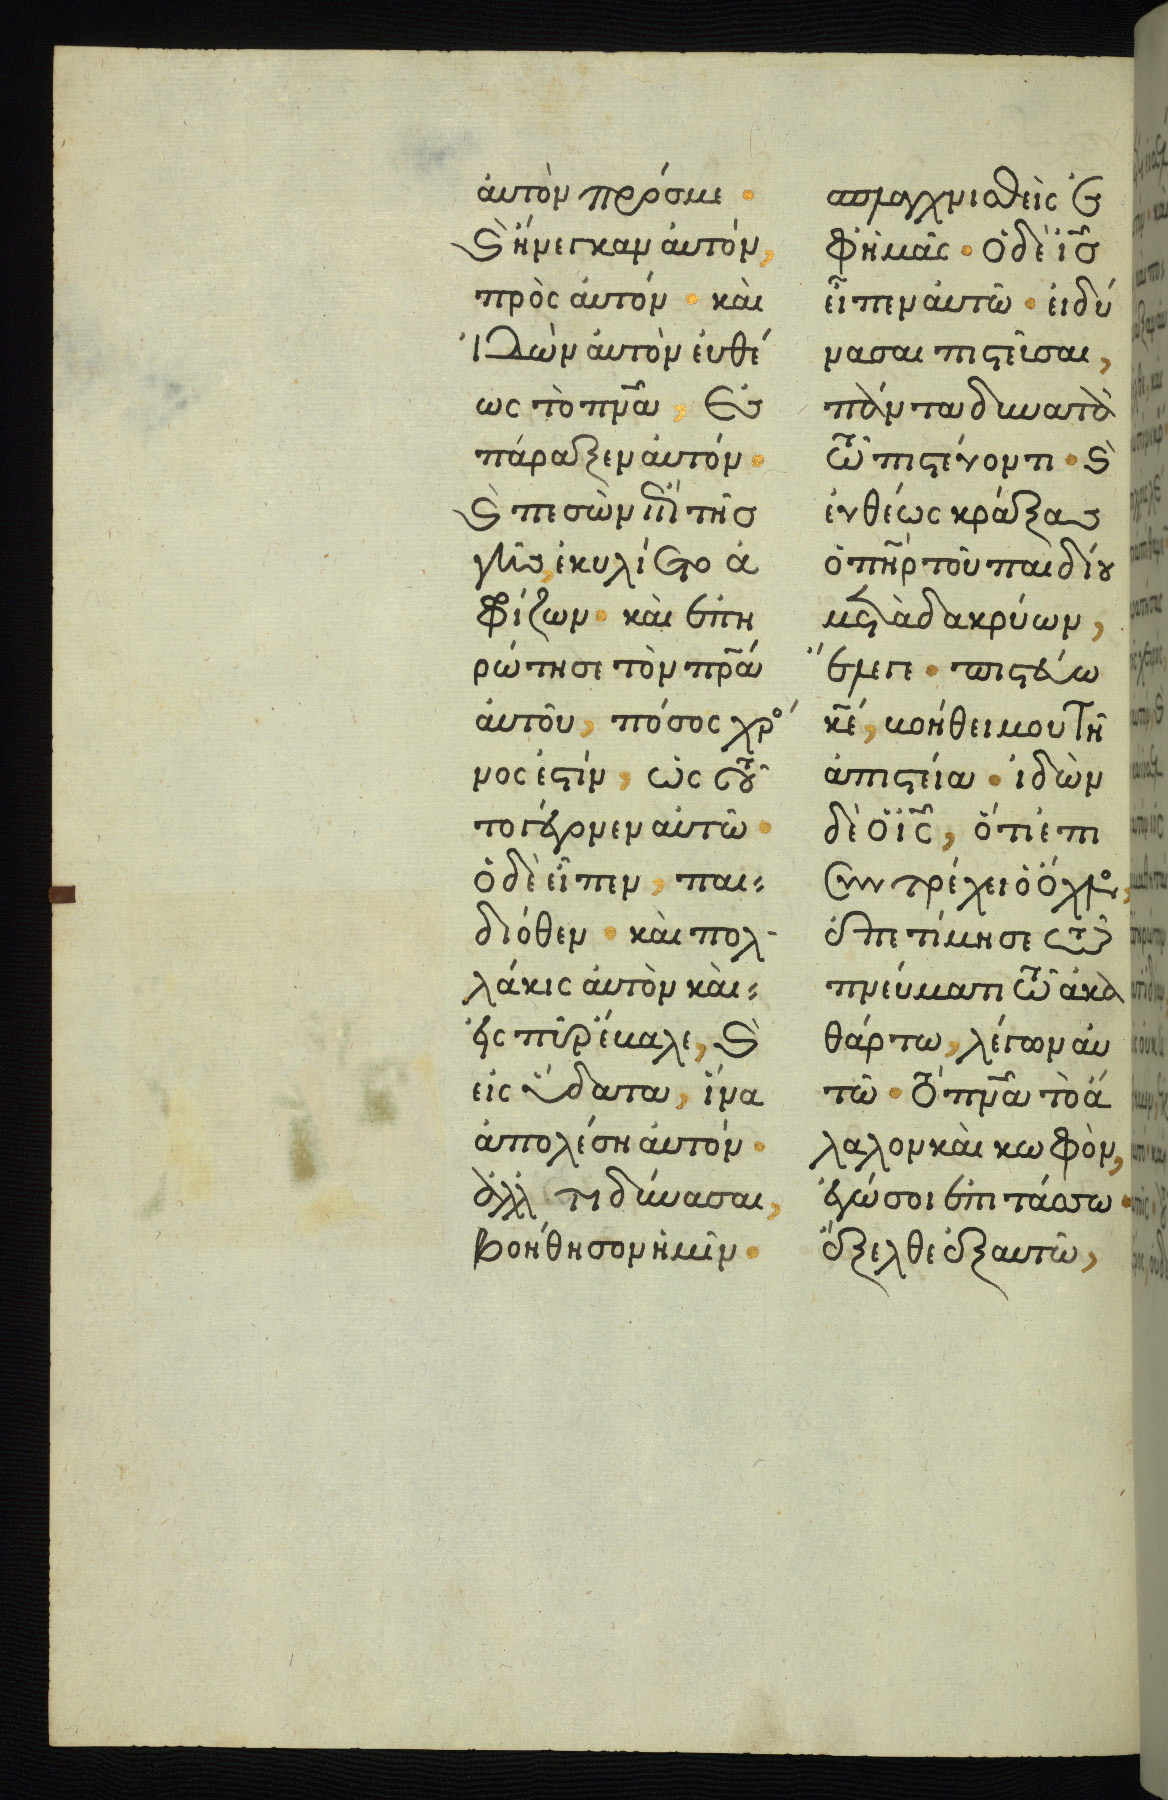 ἀυτὸν πρός με·
Καὶ ἤνεγκαν ἀυτόν,
πρὸς ἀυτόν· καὶ
ἰδὼν ἀυτὸν ἐυθέ
ως τὸ πν̅α, ἐ
σπάραξεν ἀυτόν·
Καὶ πεσὼν ἐπὶ τῆς
γῆς, ἐκυλίετο ἀ
φίζων· καὶ ἐπη
ρώτησε τὸν πρ̅α
ἀυτοῦ, πόσος χρό
νος ἐστὶν, ὡς τοῦ
το γέγονεν αὐτῶ·
ὁ δὲ εἶπεν, παι-
διόθεν· καὶ πολ-
λάκις ἀυτὸν καὶ-
εἰς πῦρ ἔβαλε, καὶ
εἰς ὕδατα, ἵνα
ἀπολέση ἀυτόν·
ἀλλ' εἴ τι δύνασαι,
βοήθησον ἡμῖν·
σπλαγχνισθεὶς ἐ
φ' ἡμᾶς· ὁ δὲ ι̅ς
εἶπεν ἀυτῶ· εἰ δύ
νασαι πιστεῦσαι,
πάντα δυνατὰ
τῶ πιστεύοντι· καὶ
ἐυθέως κράξας
ὁ πη̅ρ τοῦ παιδίου
μετὰ δακρύων,
ἔλεγε· πιστεύω
κ̅ε, βοήθει μου τῆ
ἀπιστεία· ἰδὼν
δὲ ὁ ι̅ς, ὅτι ἐπι
συντρέχει ὁ ὄχλος,
ἐπετίμησε τῶ
πνεύματι τῶ ἀκα
θάρτω, λέγων ἀυ
τῶ· τὸ πν̅α τὸ ἄ
λαλον καὶ κωφὸν,
ἐγώ σοι ἐπιτάσσω·
ἔξελθε ἐξ αυτοῦ,